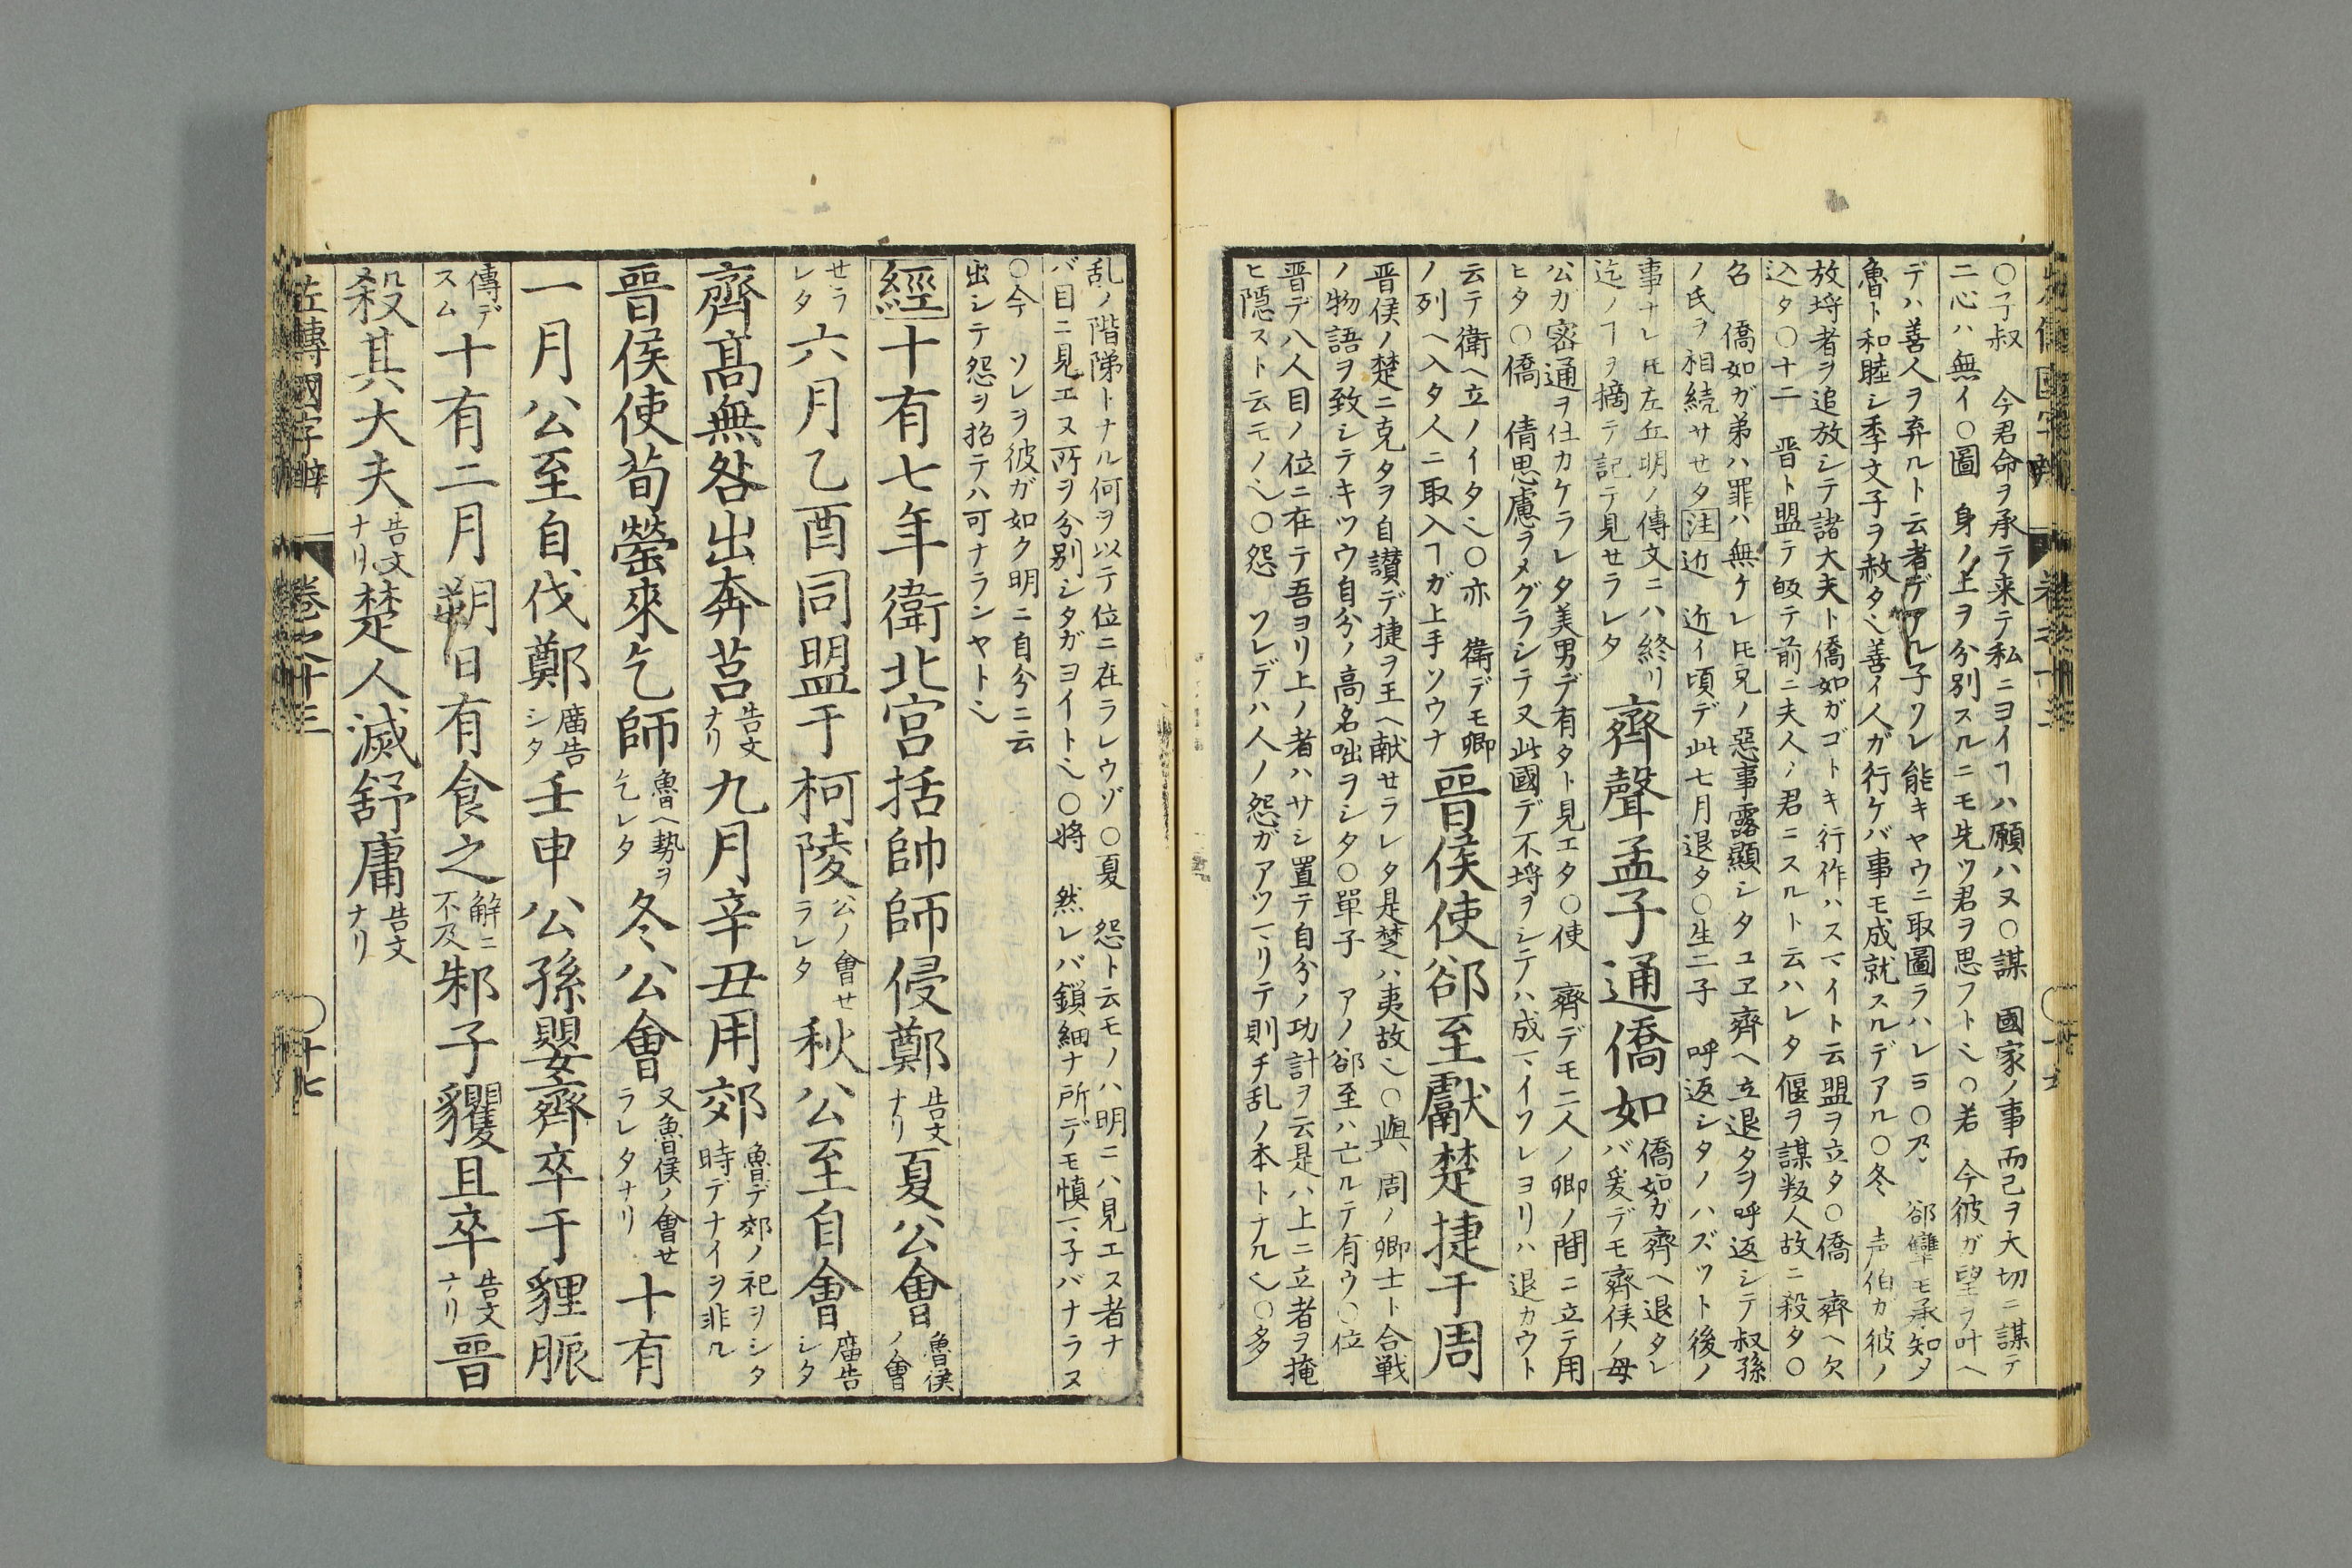 〇子叔　今君命ヲ承テ来テ私ニヨイヿハ願ハヌ〇謀　國家ノ事而已ヲ大切ニ謀テ
二心ハ無イ〇圖　身ノ上ヲ分別スルニモ先ツ君ヲ思フトヘ〇若　今彼ガ望ヲ叶ヘ
デハ善人ヲ弃ルト云者デアル子ソレ能キヤウニ取圖ラハレヨ〇乃　郤犨モ承知シ
魯ト和睦シ季文子ヲ赦タヘ善イ人ガ行ケバ事モ成就スルデアル〇冬　声伯ガ彼ノ
放埓者ヲ追放シテ諸大夫ト僑如ガゴトキ行作ハスマイト云盟ヲ立タ〇僑　齊ヘ欠
込タ〇十二　晋ト盟テ皈テ前ニ夫人ノ君ニスルト云ハレタ偃ヲ謀叛人故ニ殺タ〇
召　僑如ガ弟ハ罪ハ無ケレ𪜈兄ノ惡事露顯シタユヱ齊ヘ立退タヲ呼返シテ叔孫
ノ氏ヲ相続サセタ注近　近イ頃デ此七月退タ〇生二子　呼返シタノハズット後ノ
事ナレ𪜈左丘明ノ傳文ニハ終リ
迄ノヿヲ摘テ記テ見セラレタ
齊聲孟子通僑如
僑如ガ齊ヘ退タレ
バ爰デモ齊侯ノ母
公カ密通ヲ仕カケラレタ美男デ有タト見エタ〇使　齊デモ二人ノ卿ノ間ニ立テ用
ヒタ〇僑　倩思慮ヲメグラシテ又此國デ不埒ヲシテハ成マイソレヨリハ退カウト
云テ衛ヘ立ノイタヘ〇亦　衛デモ卿
ノ列ヘ入タ人ニ取入ヿガ上手ソウナ
晋侯使郤至獻楚捷于周
晋侯ノ楚ニ克タヲ自讃デ捷ヲ王ヘ献セラレタ是楚ハ夷故ヘ〇與　周ノ卿士ト合戦
ノ物語ヲ致シテキツウ自分ノ高名咄ヲシタ〇單子　アノ郤至ハ亡ルテ有ウ〇位
晋デ八人目ノ位ニ在テ吾ヨリ上ノ者ハサシ置テ自分ノ功計ヲ云是ハ上ニ立者ヲ掩
ヒ隠スト云モノヘ〇怨　ソレデハ人ノ怨ガアツマリテ則チ乱ノ本トナルヘ〇多
乱ノ階梯トナル何ヲ以テ位ニ在ラレウゾ〇夏　怨ト云モノハ明ニハ見エヌ者ナ
バ目ニ見エヌ所ヲ分別シタガヨイトヘ〇將　然レバ鎖細ナ所デモ慎マ子バナラヌ
〇今　ソレヲ彼ガ如ク明ニ自分ニ云
出シテ怨ヲ招テハ可ナランヤトヘ
經十有七年衛北宮括帥師侵鄭告文ナリ夏公會魯侯ノ會
せラレタ六月乙酉同盟于柯陵公ノ會せラレタ秋公至自會廣告シタ
齊髙無咎出奔莒告文ナリ九月辛丑用郊魯デ郊ノ祀ヲシタ時デナイヲ非ル
晉侯使荀罃來乞師魯ヘ勢ヲ乞レタ冬公會又魯侯ノ會せラレタナリ十有
一月公至自伐鄭廣告シタ壬申公孫嬰齊卒于貍脤
傳デスム十有二月朔日有食之解ニ不及邾子貜且卒告文ナリ晉
殺其大夫告文ナリ楚人滅舒庸告文ナリ
左傳國字辯　卷之十三　〇十七